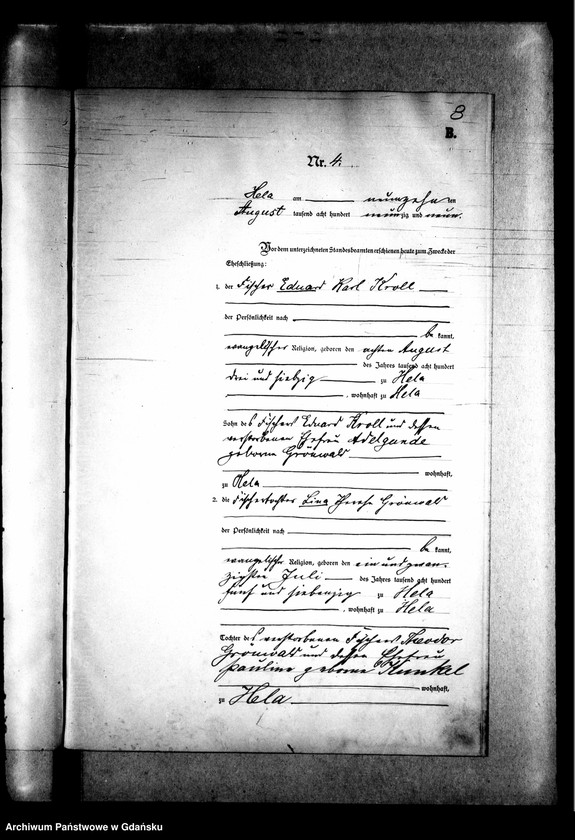 8
B.
Nr. 4.
Hela am neunzehnten
August tausend acht hundert neunzig und neun.
Vor dem unterzeichneten Standesbeamten erschienen heute zum Zwecke der
Eheschließung:
1. der Fischer Eduard Karl Kroll
der Persönlichkeit nach
be kannt,
evangelischer Religion, geboren den achten August
des Jahres tausend acht hundert
drei und siebzig zu Hela
, wohnhaft zu Hela
Sohn des Fischers Eduard Kroll und dessen
verstorbenen Ehefrau Adelgunde
geborene Grönwald
wohnhaft,
zu Hela
2. die Fischertochter Lina Therese Grönwald
der Persönlichkeit nach
be kannt,
evangelischer Religion, geboren den ein und zwan-
zigsten Juli des Jahres tausend acht hundert
fünf und siebenzig zu Hela
, wohnhaft zu Hela
Tochter des verstorbenen Fischers Theodor
Grönwald und dessen Ehefrau
Pauline geborene Kunkel
wohnhaft,
zu Hela
Archiwum Państwowe w Gdańsku